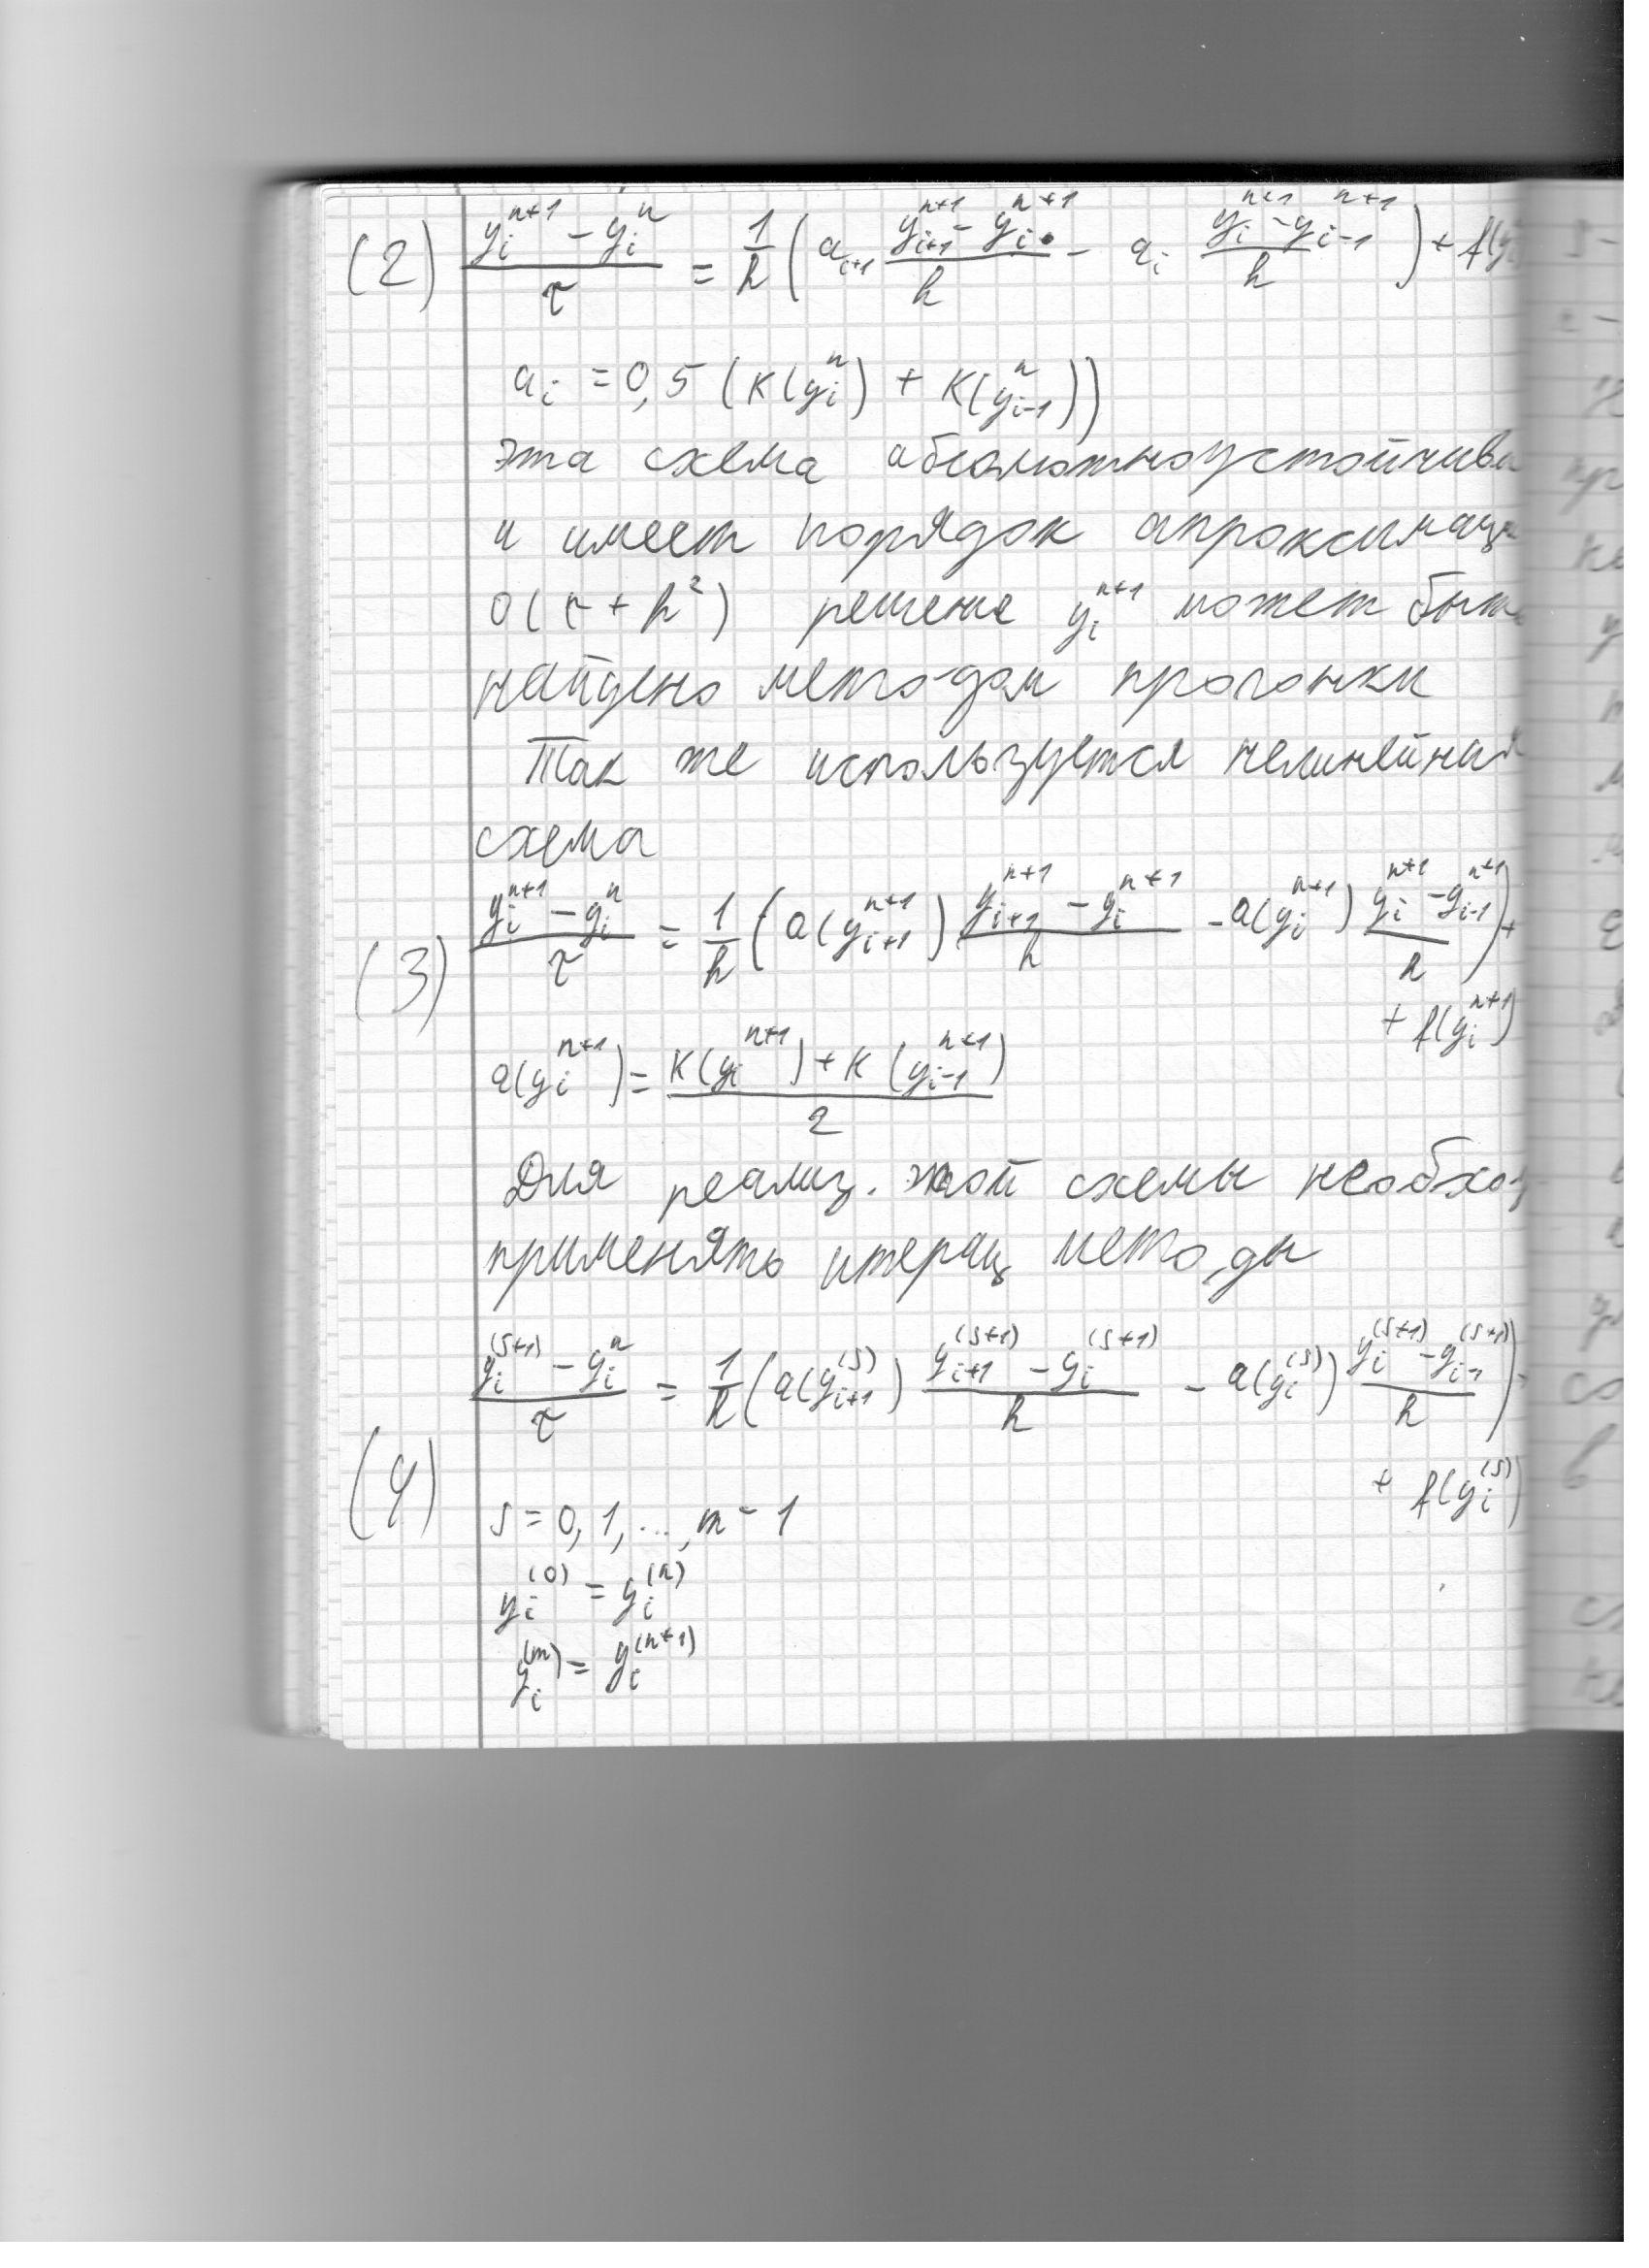 (2) (y_i^{n+1} - y_i^n)/τ = 1/h (a_{i+1} (y_{i+1}^{n+1} - y_i^{n+1})/h - a_i (y_i^{n+1} - y_{i-1}^{n+1})/h) + f(y
a_i = 0,5 (K(y_i^n) + K(y_{i-1}^n))
эта схема абсолютноустойчива
и имеет порядок апроксимаци
O(τ + h^2) решение y_i^{n+1} может быть
найдено методом прогонки
Так же используется нелинейная
схема
(3) (y_i^{n+1} - y_i^n)/τ = 1/h (a(y_{i+1}^{n+1}) (y_{i+1}^{n+1} - y_i^{n+1})/h - a(y_i^{n+1}) (y_i^{n+1} - y_{i-1}^{n+1})/h) +
+ f(y_i^{n+1})
a(y_i^{n+1}) = (K(y_i^{n+1}) + K(y_{i-1}^{n+1}))/2
Для реализ. этой схемы необход
применять итерац методы
(4) (y_i^{(s+1)} - y_i^n)/τ = 1/h (a(y_{i+1}^{(s)}) (y_{i+1}^{(s+1)} - y_i^{(s+1)})/h - a(y_i^{(s)}) (y_i^{(s+1)} - y_{i-1}^{(s+1)})/h) +
+ f(y_i^{(s)})
s = 0, 1, ..., m - 1
y_i^{(0)} = y_i^{(n)}
y_i^{(m)} = y_i^{(n+1)}